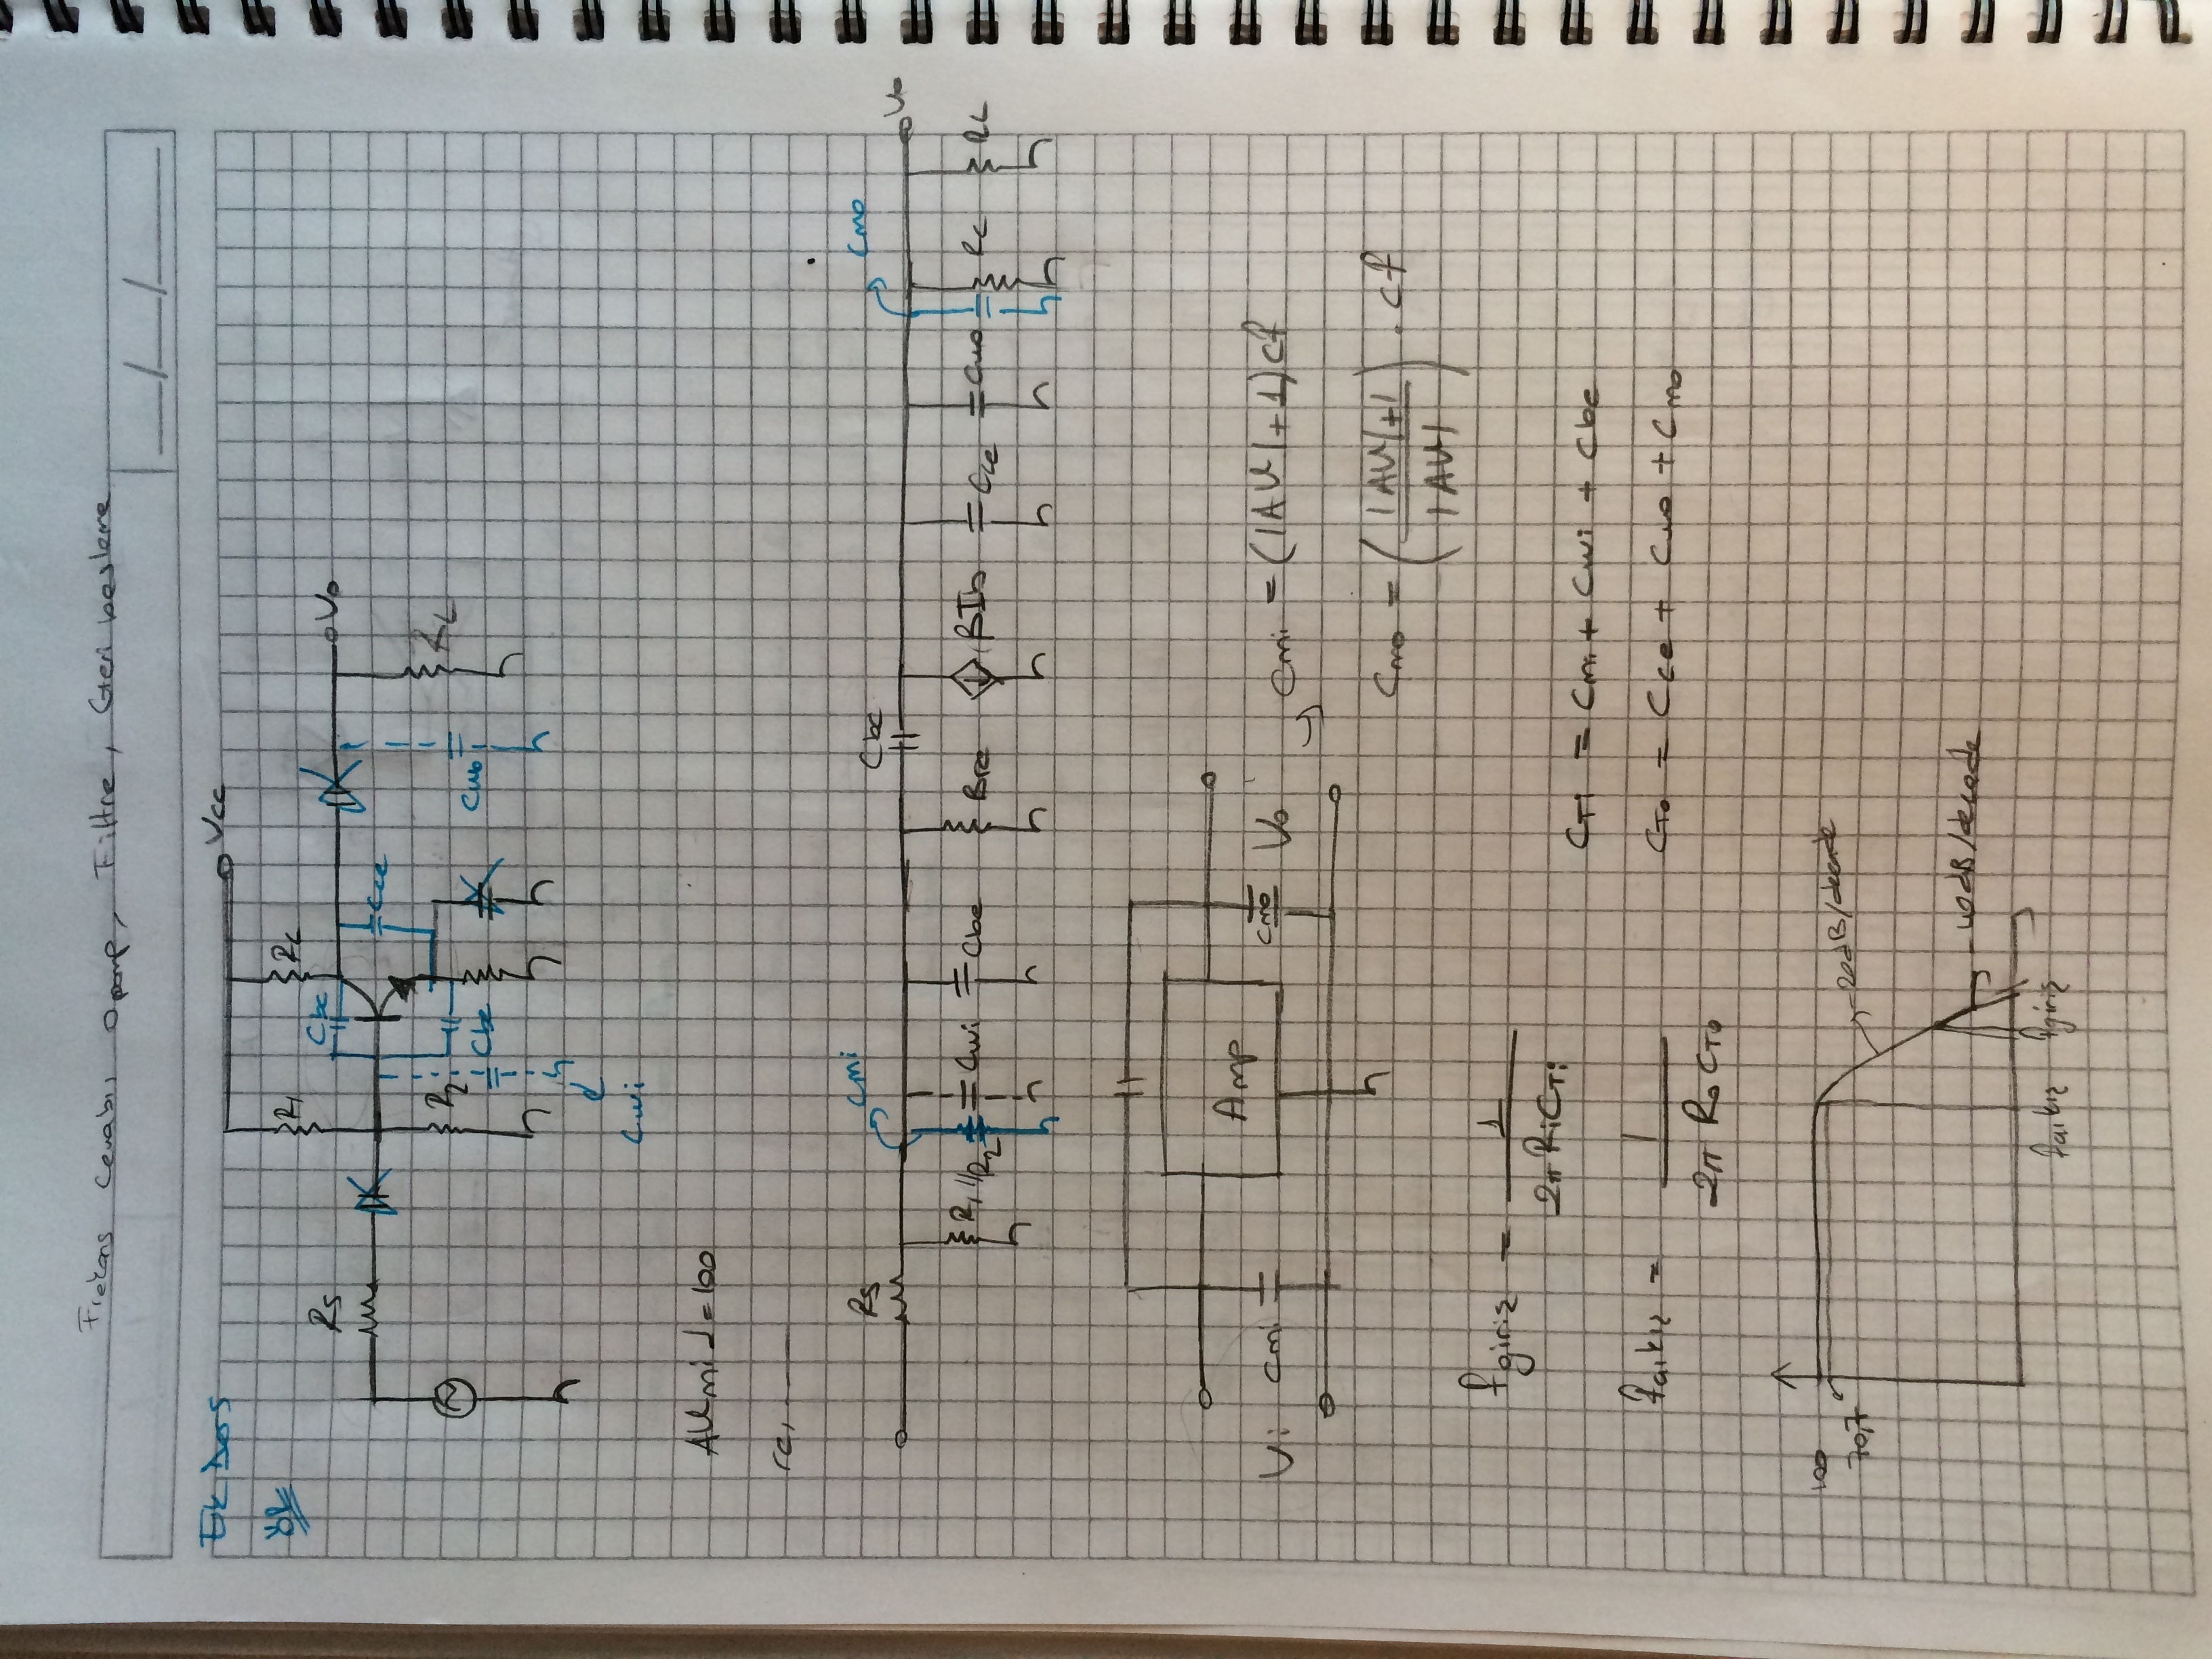 Frekans Cevabı, Opamp, Filtre, Geri besleme
__/__/____
Ek Ders
ÖR
Vcc
R1
Rc
Rs
Cbc
Vo
Cce
R2
Cbe
Cwo
RL
Cwi
AVmid = 100
re,
Cmi
Cmo
Rs
Cbc
Vo
R1//R2
Cwi
Cbe
Bre
BIb
Cce
Cwo
Rc
RL
Amp
Vi
Cmi
Cmo
Vo
Cmi = (|AV|+1)Cf
Cmo = (|AV|+1 / |AV|) . Cf
fgiriş = 1 / 2π Ri CTi
CTi = Cmi + Cwi + Cbe
fçıkış = 1 / 2π Ro CTo
CTo = Cce + Cwo + Cmo
100
70,7
-20dB/decade
-40dB/decade
fçıkış
fgiriş